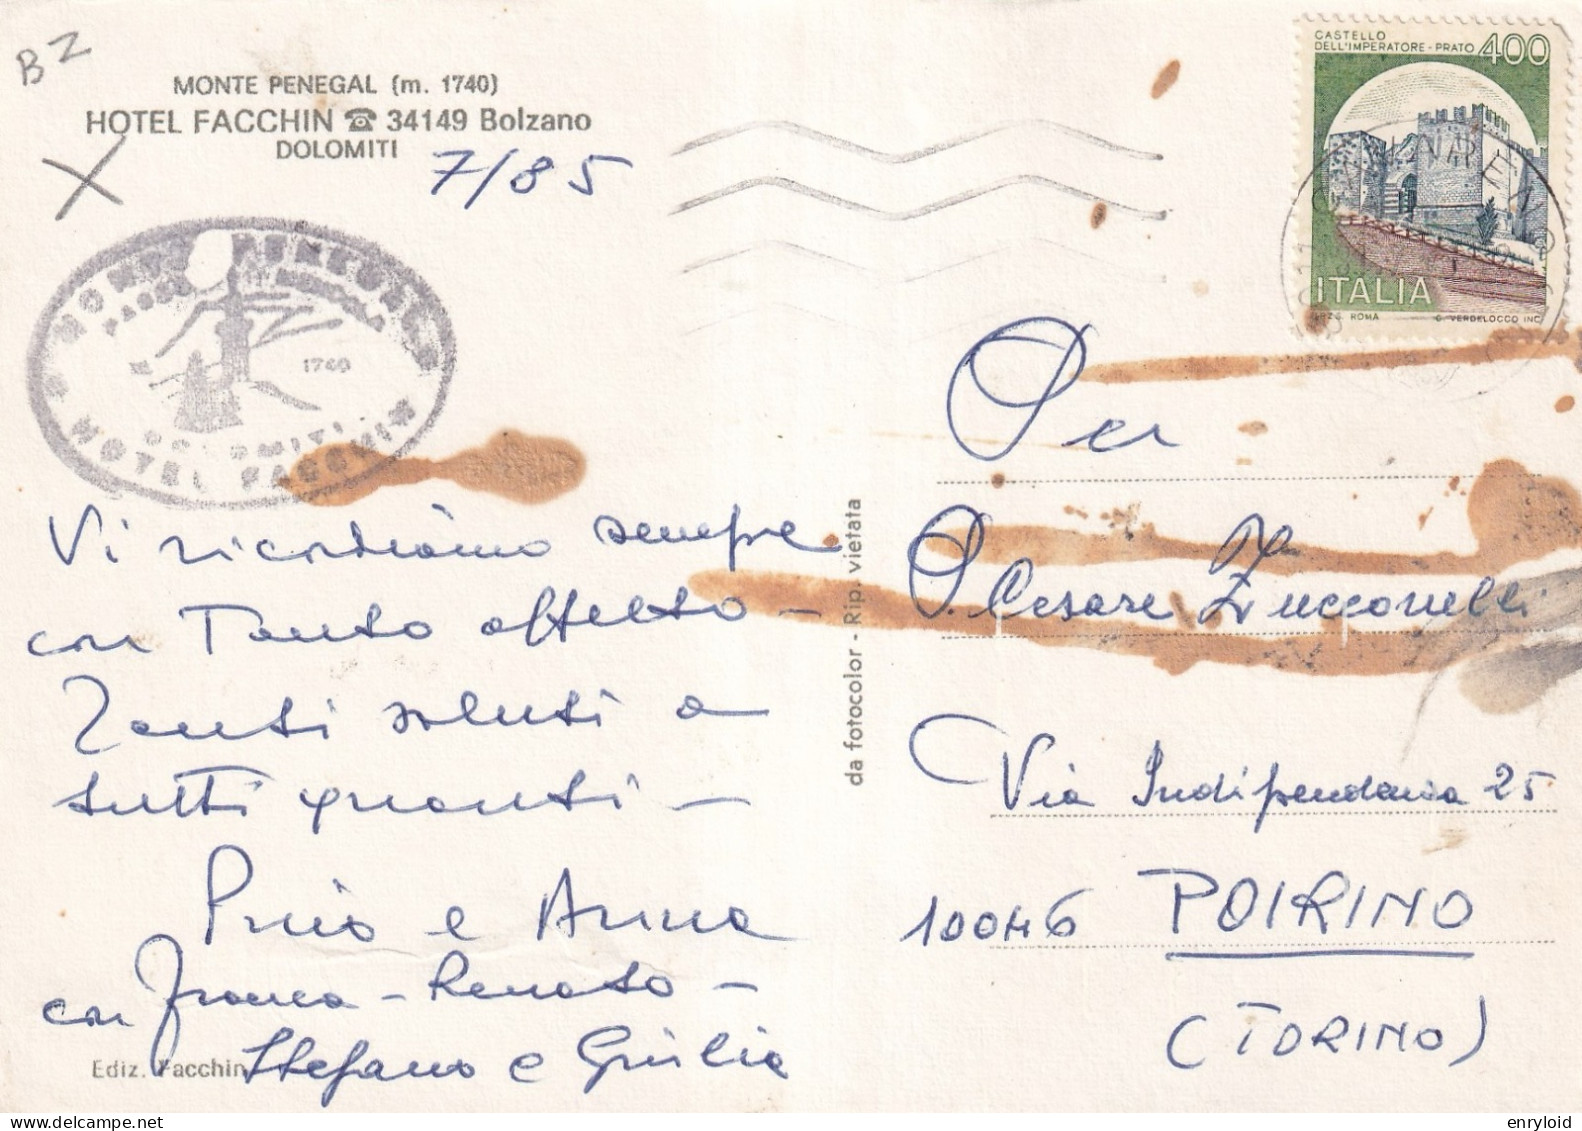 BZ
MONTE PENEGAL (m. 1740)
HOTEL FACCHIN ☎ 34149 Bolzano
DOLOMITI
7/85
X
1740
DOLOMITI
HOTEL FACCHIN
CASTELLO
DELL'IMPERATORE - PRATO 400
ITALIA
I.P.Z.S. ROMA E. VERDELOCCO INC.
Vi ricordiamo sempre
con Tanto affetto -
Tanti saluti a
tutti quanti -
Pino e Anna
con Franca - Renato -
Stefano e Giulia
Ediz. Facchin
da fotocolor - Rip. vietata
Per
P. Cesare Zucconelli
Via Indipendenza 25
10046 POIRINO
(TORINO)
enryloid